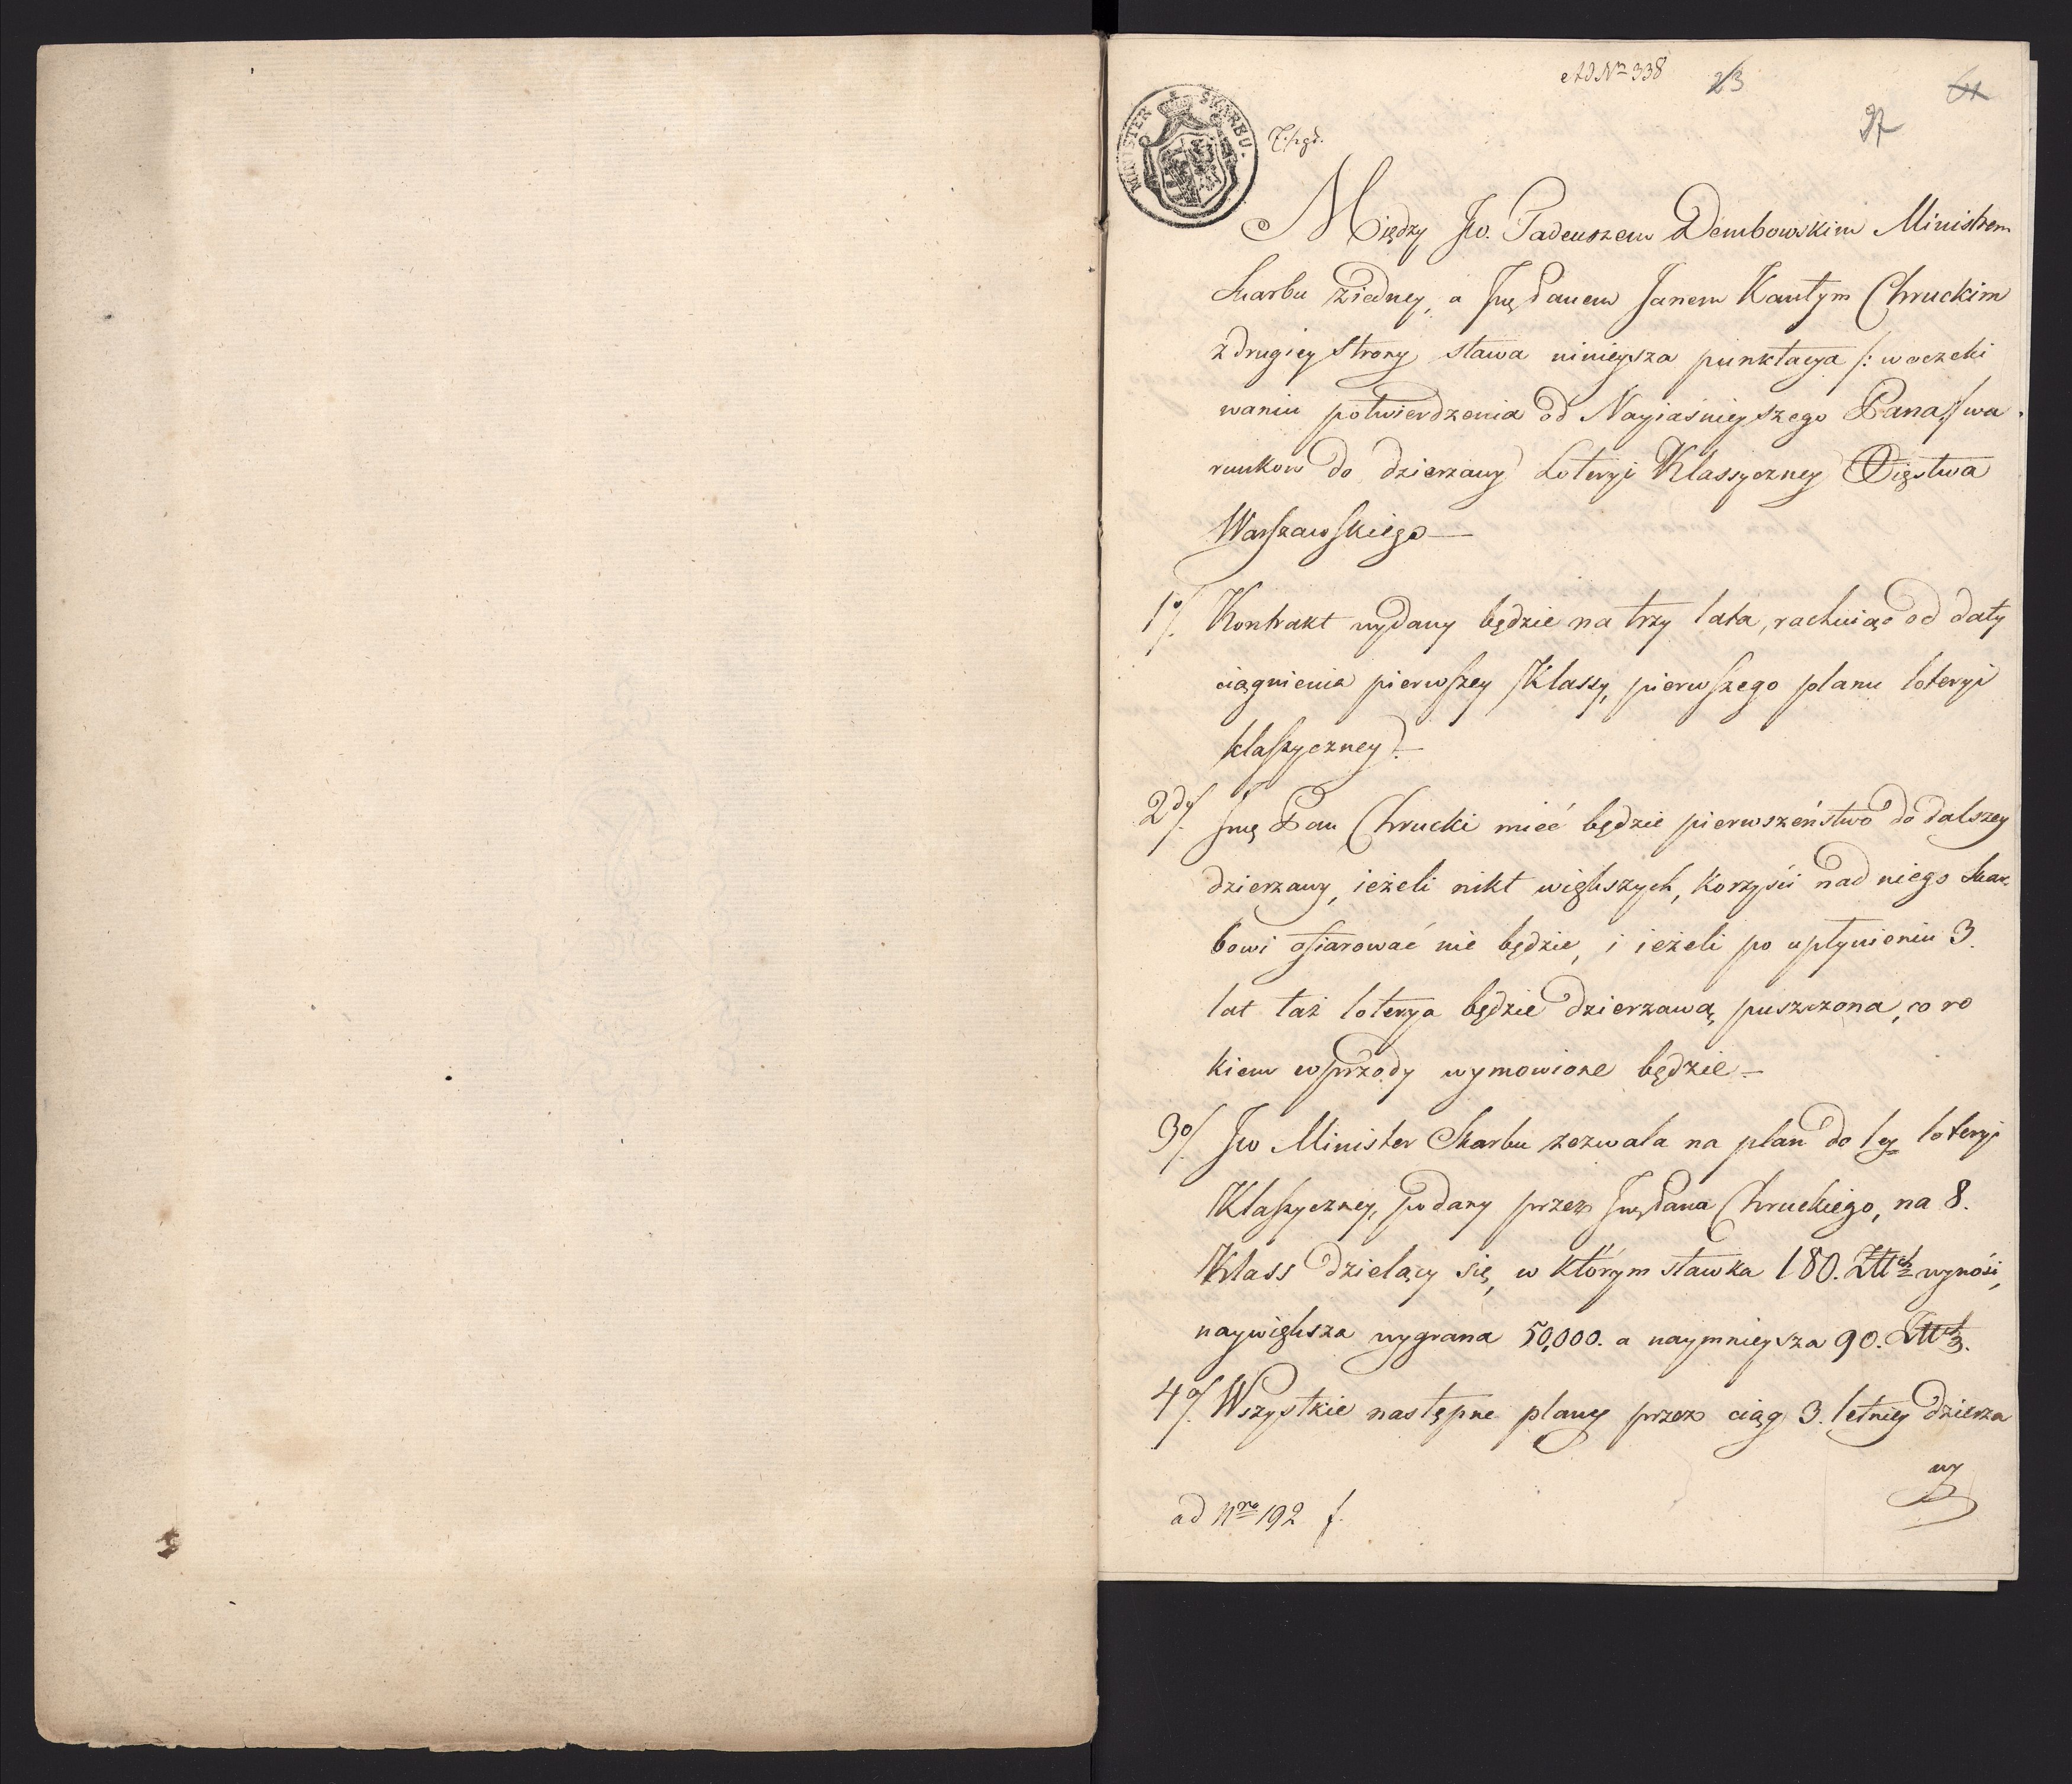 Ad Nro 338
23
MINISTER SKARBU.
Między Jw. Tadeuszem Dembowskim Ministrem
Skarbu ziedney, a Jmę Panem Janem Kantym Chruckim
z drugiey strony stawa ninieysza punktacya /: w oczeki
waniu potwierdzenia od Nayiaśnieyszego Pana :/ wa
runkow do dzierzawy Loteryi Klassyczney Xięstwa
Warszawskiego —
1o/. Kontrakt wydany będzie na trzy lata, rachuiąc od daty
ciągnienia pierwszey Klassy, pierwszego planu loteryi
klassyczney. —
2do/. Jmę Pan Chrucki mieć będzie pierwszeństwo do dalszey
dzierzawy, ieżeli nikt większych, korzyści nad niego Skar
bowi ofiarować nie będzie, i ieżeli po upłynieniu 3.
lat taż loterya będzie dzierzawą puszczona, co ro
kiem wprzody wymowione będzie —
3o/. Jw Minister Skarbu zezwala na plan do 1ey loteryi
Klassyczney, podany przez Jmę Pana Chruckiego, na 8.
Klass dzielący się, w którym stawka 180. Złłch wynosi,
naywiększa wygrana 50,000. a naymnieysza 90. Złłch.
4o/. Wszystkie następne plany przez ciąg 3. letniey dzierza
wy
ad Nro 192 f.